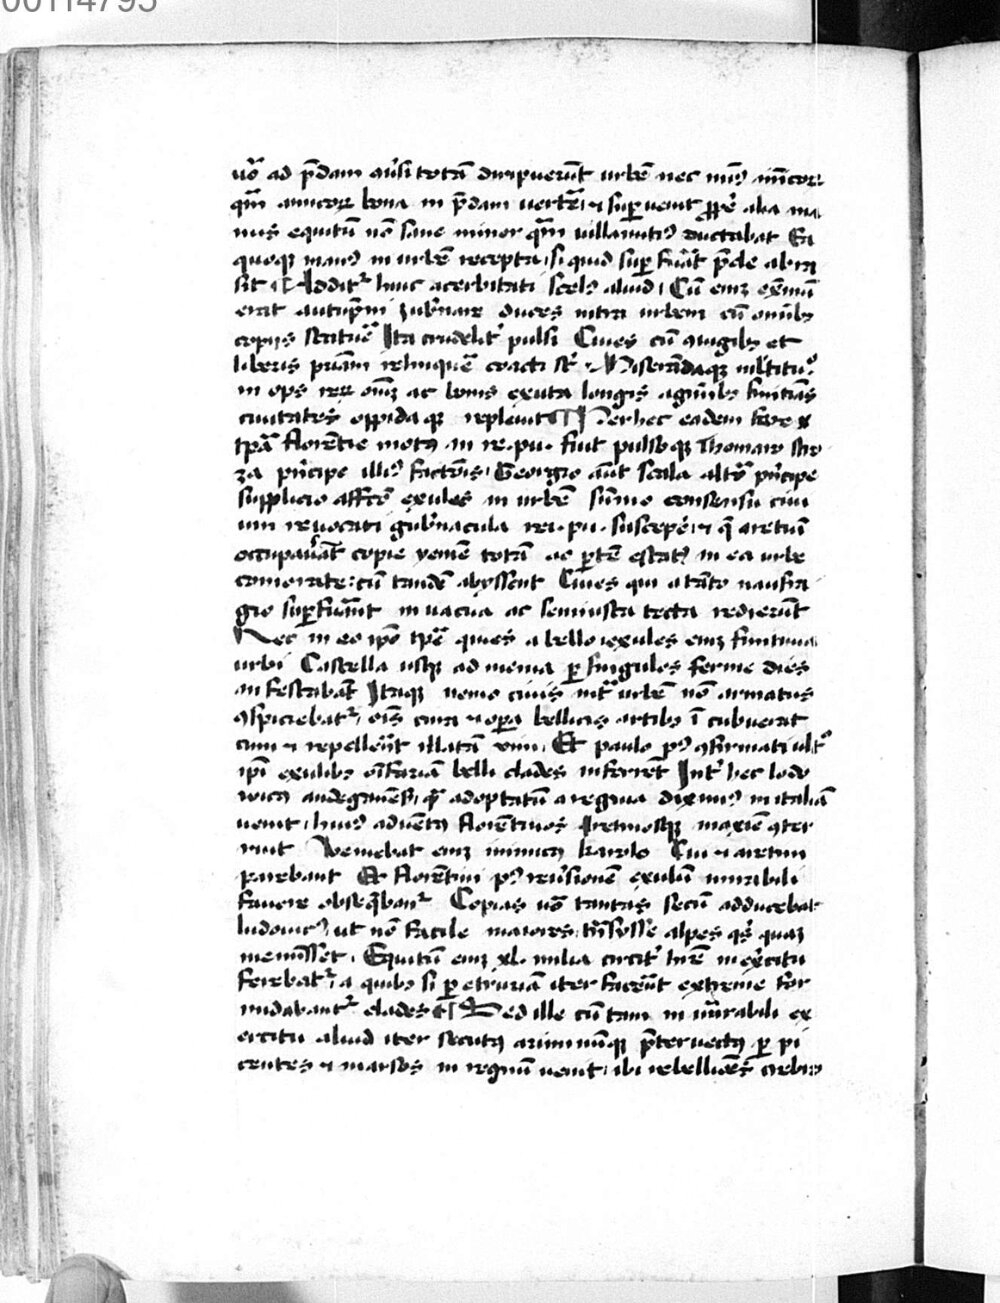 00114795
uõ ad p̄dam auſi totā diripuerūt urbē nec min9 inīcoꝝ
qm̄ amicoꝝ bona in p̄dam uertē⁊ ſuꝑuenit alia ma
nus equitū nō ſane minor qm̄ uillanuti9 ductabat Ea
quoqꝫ manus in urbē recepta ſi quid ſuꝑ fu̅at p̄de abra
ſit Additr̄ huic acerbitati ſcel9 aliud Cū eniꝫ
erat duces intra urbem cū omnib9
copijs ſtatuē Ita crudelitr̄ pulſi Ciues cū 9iugib9 et
liberis pr̄iam relinquē coacti ſt̄ Miſerādaqꝫ mĺtitu
in opſ reꝝ oīm ac bonis exuta longis agmīb9 finitias
ciuitates oppida qꝫ repleuit Per hec eadem fere
tpa florentie mot9 in re.pu. fiut pulſoqꝫ Thoma ſtro
za p̄ncipe illi9 factōis Georgio aūt ſcala altō p̄ncipe
ſupplicio affcō exules in urbē ſūmo conſenſu ciui
um reuocati gub̄nacula rei.pu. ſuſcepē⁊ q̄ aretiū
occupauāt copie yemē totā ac ꝑtē eſtat9 in ea urbe
comorate cū tandē abyſſent Ciues qui a tāto naufra
gio ſuꝑfuānt in uacua ac ſemiuſta tecta redierūt
Nec in eo ip̄o tpe quies a bello exules eniꝫ finitima
urbi Caſtella uſqꝫ ad menia ꝑ ſingulos ferme dies
in feſtabāt Itaqꝫ nemo ciuis intr̄ urbē nō armatus
9ſpiciebatr̄ oīs cura ⁊ oꝑa bellicis artib9 ī cubuerat
cum ⁊ repellerēt illatā uim Et paulo p9 9firmati ultr̄
ipſi exulib9 oīfariā belli clades inferrēt Int̄ hec lodo
uicus andegauēſ quē adoptatū a regina diximus in italiā
uenit hui9 aduēt9 florētinos Aretinoſqꝫ maxīe 9ter
ruit Veniebat eniꝫ inimic9 karolo Cui ⁊ aretini
parebant Et florētini p9 reuſionē exulū mirabili
fauore obſeq̄bantr̄ Copias uō tantas ſecū adducebat
ludouic9 ut nō facile maiores trāſyſſe alpes quiſquaꝫ
memīſſet Equitū eniꝫ xl milia circitr̄ hr̄e in exercitu
ferebatr̄ a quib9 ſi ꝑ etruriā iter facerēt extreme for
midabantr̄ clades Sed ille cū tam in nūrabili ex
ercitu aliud iter ſecut9 ariminūqꝫ p̄teruect9 ꝑ pi
centes ⁊ marſos in regnū uenit ibi rebellioēs crebre